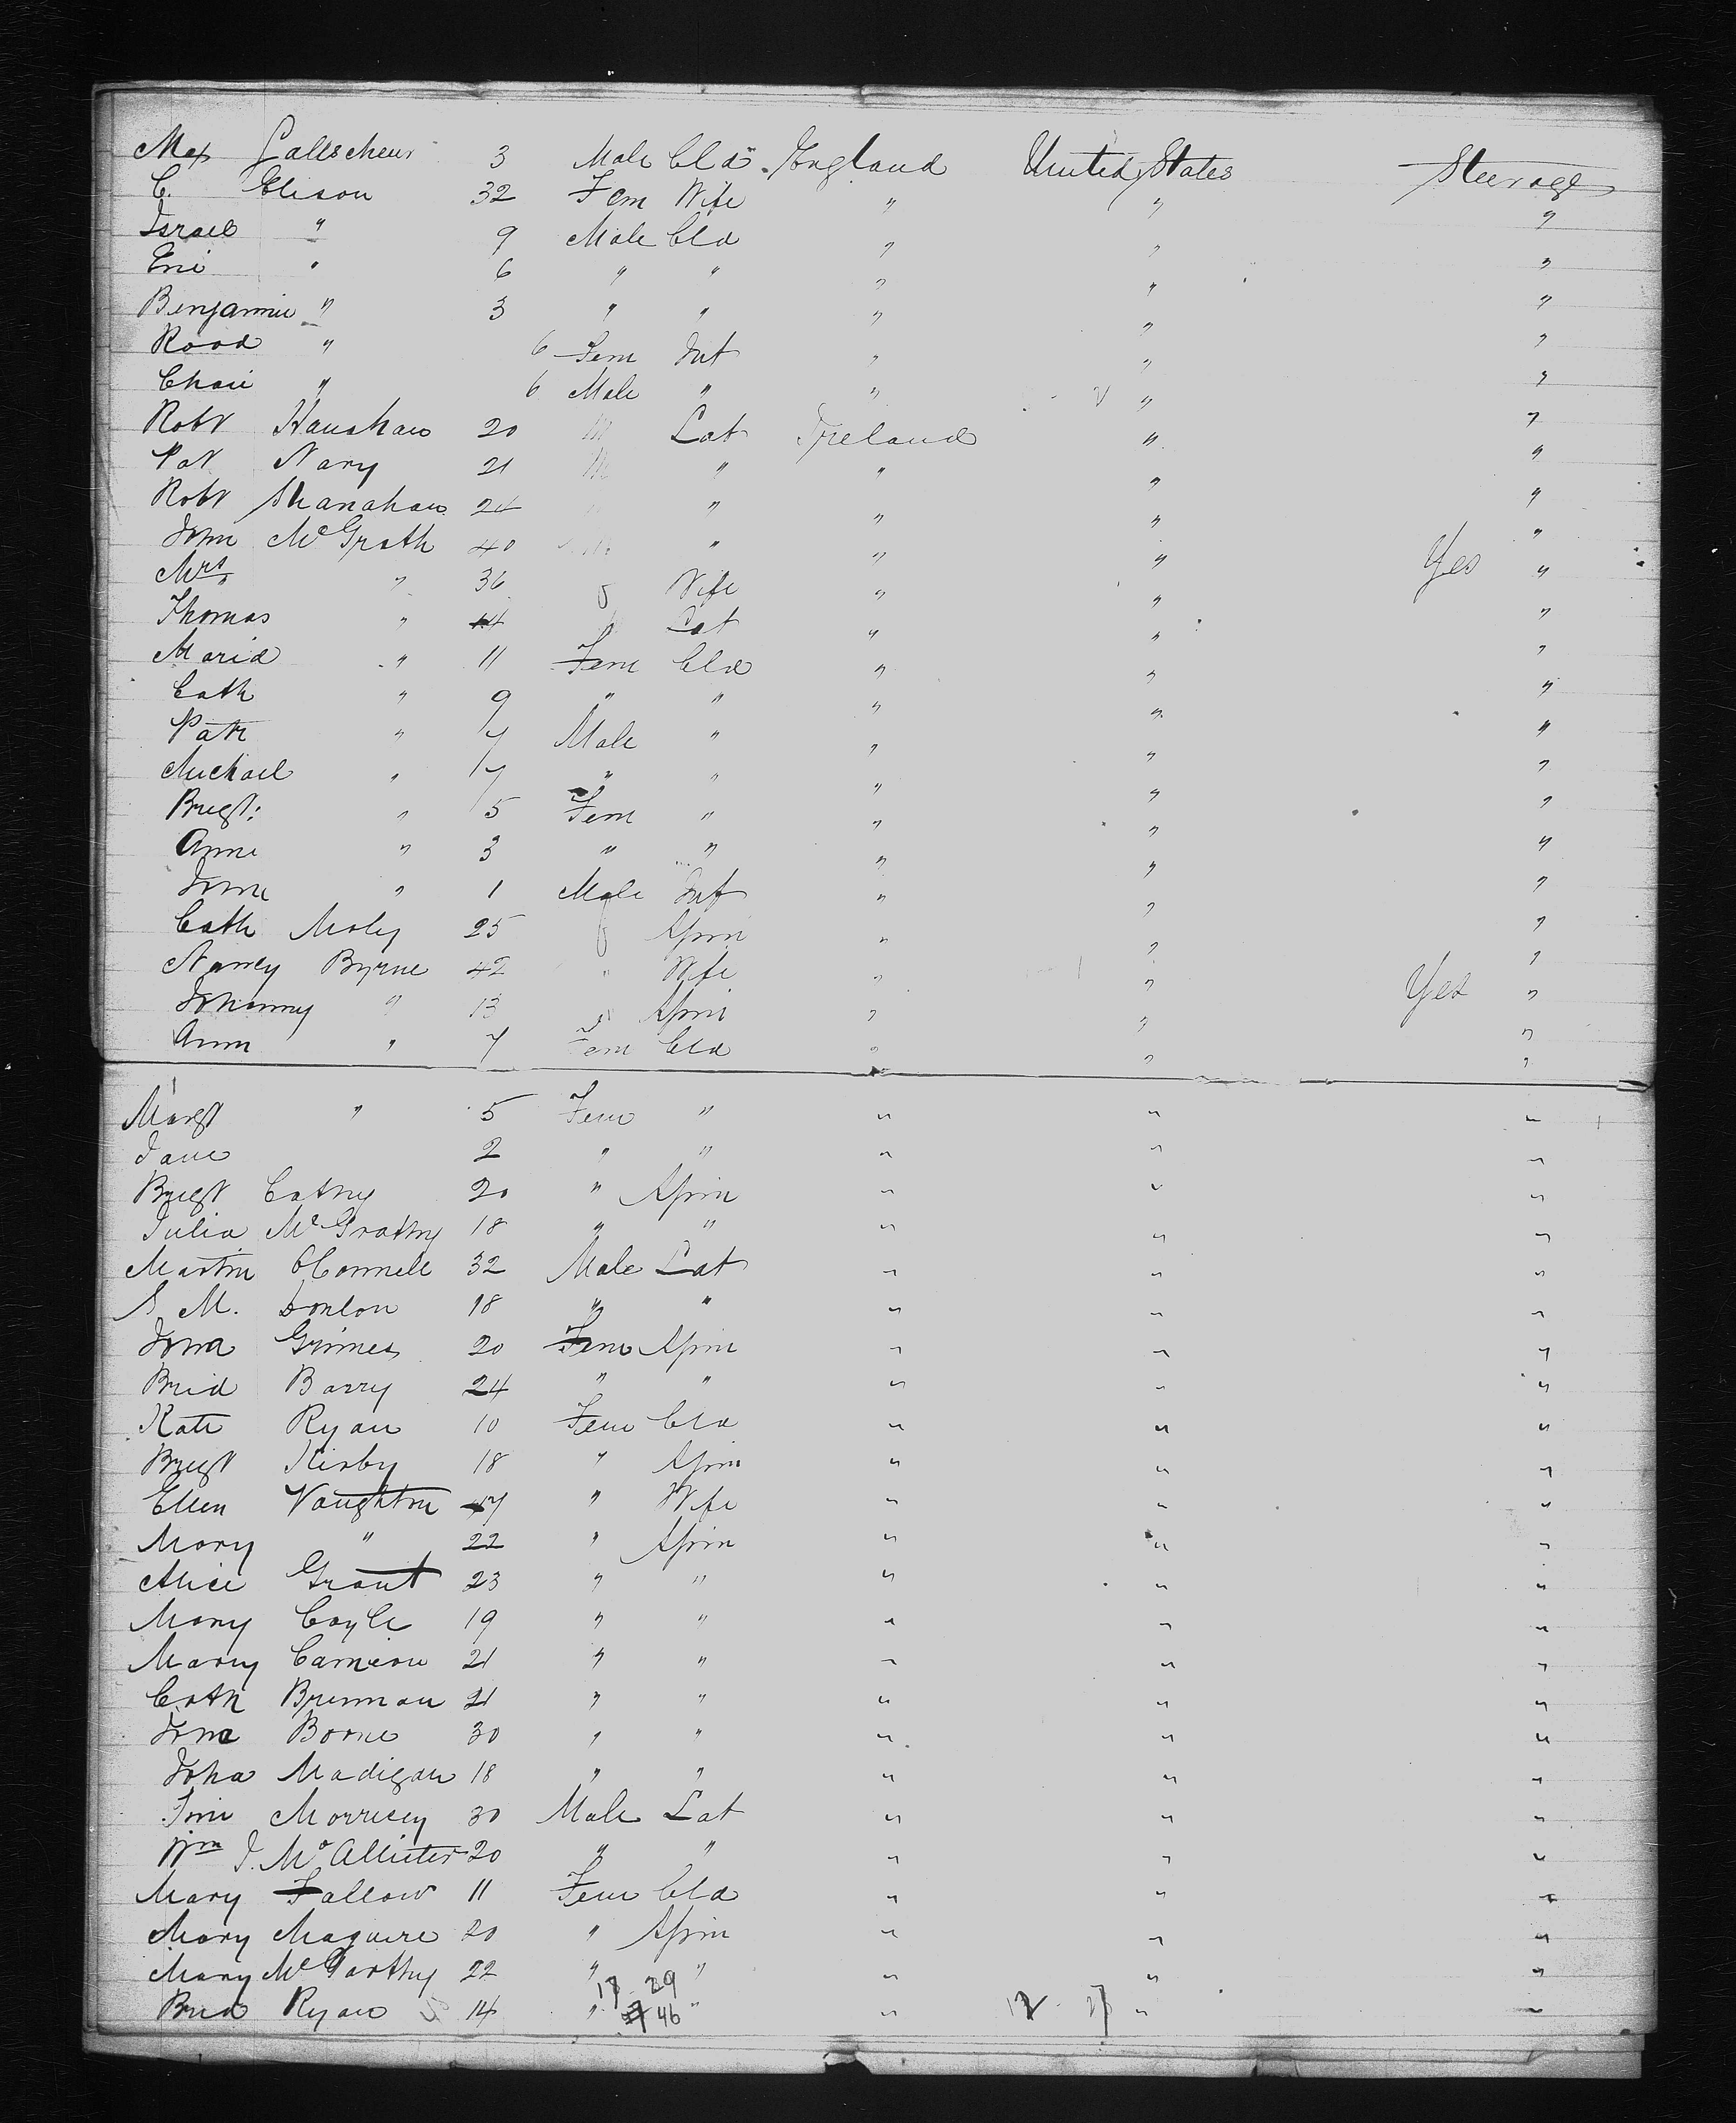 Max Gallscheur 3 Male Cld England United States Steerage
C. Elison 32 Fem Wife " " "
Israel " 9 Male Cld " " "
Eni " 6 " " " " "
Benjamin " 3 " " " " "
Rood " 6 Fem Inf " " "
Chaii " 6 Male " " " "
Robt Hanahan 20 M Lab Ireland " "
Pat Nary 21 M " " " "
Robt Shanahan 24 " " " "
John McGrath 40 " " " "
Mrs " 36 f Wife " " Yes "
Thomas " 14 Lab " " "
Maria " 11 Fem Cld " " "
Cath " 9 " " " " "
Patk " 7 Male " " " "
Michael " 7 " " " " "
Bregt: " 5 Fem " " " "
Anne " 3 " " " " "
John " 1 Male Inf " " "
Cath Moley 25 f Spin " " "
Nancy Byrne 42 " Wife " " "
Johanny " 13 Spin " " Yes "
Annn " 7 Fem Cld " " "
Margt " 5 Fem " " " "
Jane 2 " " " " "
Bregt Cathy 20 " Spin " " "
Julia McGrathy 18 " " " " "
Martin OConnell 32 Male Lab " " "
S M. Donlon 18 " " " " "
Joha Grimes 20 Fem Spin " " "
Brid Barry 24 " " " " "
Kate Ryan 10 Fem Cld " " "
Bregt Kirby 18 " Spin " " "
Ellen Naughton 47 " Wife " " "
Mary " 22 " Spin " " "
Alice Grant 23 " " " " "
Mary Coyle 19 " " " " "
Mary Cameron 21 " " " " "
Cath Brennan 21 " " " " "
Joha Borne 30 " " " " "
Joha Madigan 18 " " " " "
Tim Morrisey 30 Male Lab " " "
Wm J. McAllister 20 " " " " "
Mary Fallow 11 Fem Cld " " "
Mary Maguire 20 " Spin " " "
Mary McGarthy 22 " " " " "
17 29
Brid Ryan 14 " 46 " " "